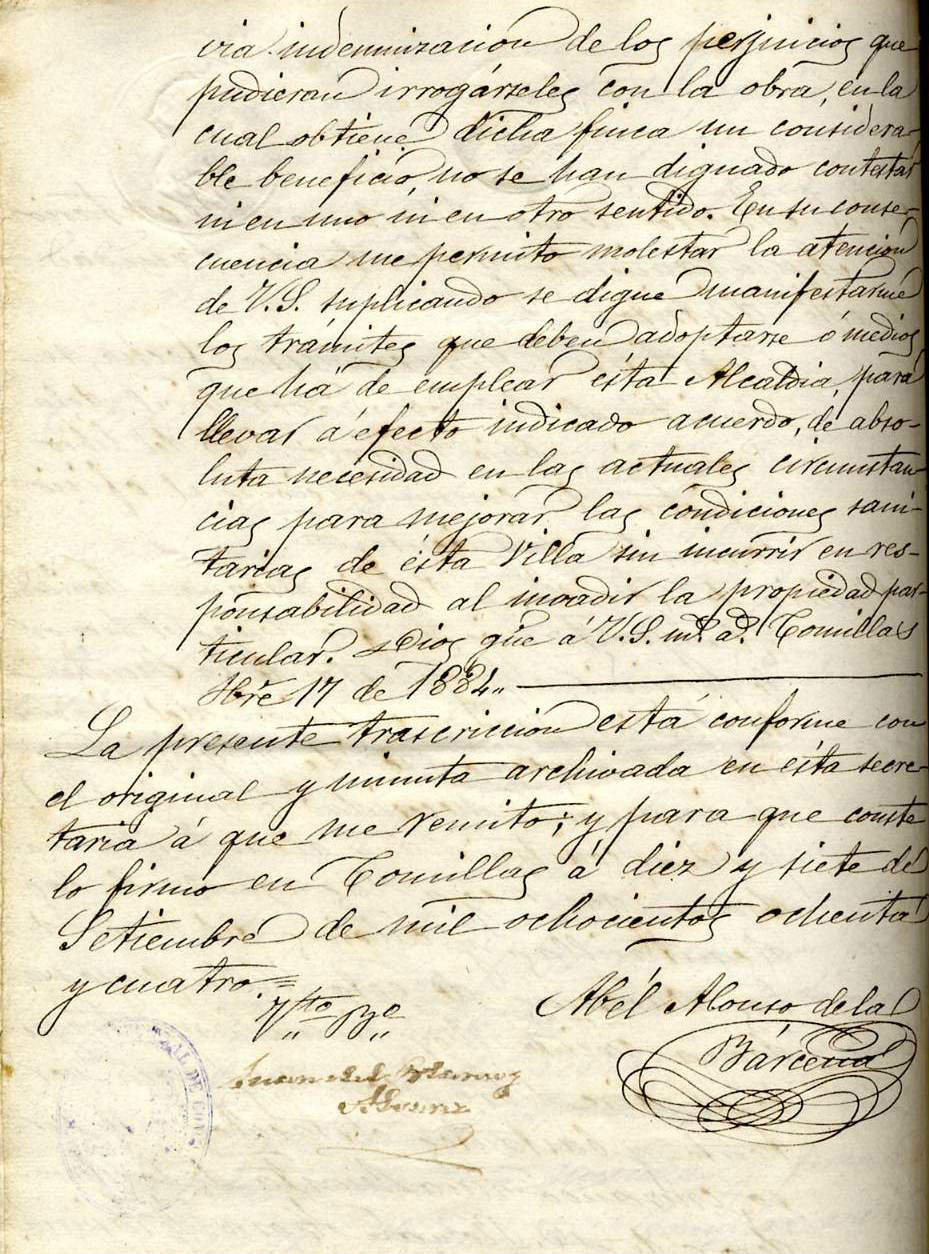 via indemnizacion de los perjuicios que
pudieran irrogárseles con la obra, en la
cual obtiene dicha finca un considera-
ble beneficio, no se han dignado contestar
ni en uno ni en otro sentido. En su conse-
cuencia me permito molestar la atencion
de V.S. suplicando se digne manifestarme
los trámites que deben adoptarse ó medios
que há de emplear ésta Alcaldia, para
llevar á efecto indicado acuerdo, de abso-
luta necesidad en las actuales circunstan-
cias para mejorar las condiciones sani-
tarias de ésta Villa sin incurrir en res-
ponsabilidad al invadir la propiedad par-
ticular. Dios gue á V.S. ms. as. Comillas
7bre 17 de 1884.
La presente trascricion está conforme con
el original y minuta archivada en ésta secre-
taria á que me remito; y para que conste
lo firmo en Comillas á diez y siete de
Setiembre de mil ochocientos ochenta
y cuatro =
Vto Bo
Abél Alonso de la
Bárcena
Juan del